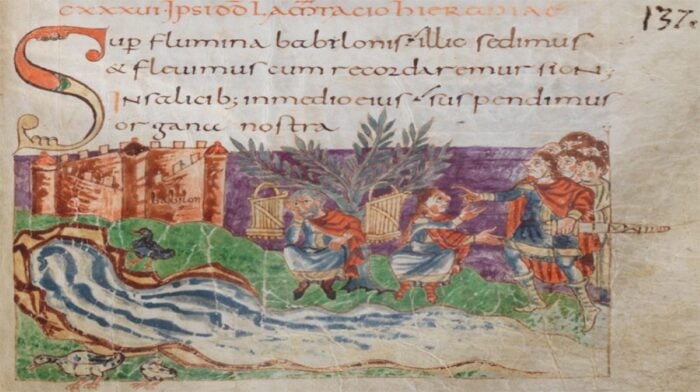 CXXXVI IPSI DD
137.
Sup flumina babilonis illic sedimus
& fleuimus cum recordaremur sion;
In salicib; inmedio eius suspendimus
organa nostra
babilon